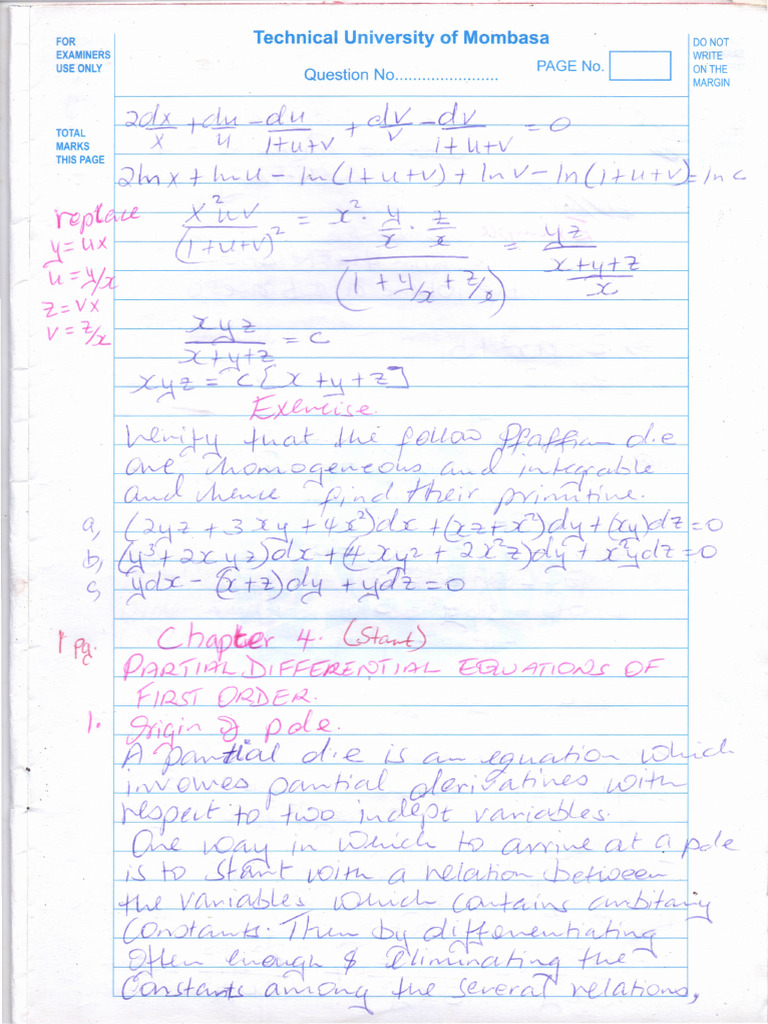 FOR EXAMINERS USE ONLY
Technical University of Mombasa
DO NOT WRITE ON THE MARGIN
Question No.......................
PAGE No.
TOTAL MARKS THIS PAGE
2dx/x + du/u - du/1+u+v + dv/v - dv/1+u+v = 0
2lnx + lnu - ln(1+u+v) + lnv - ln(1+u+v) = ln c
replace
y = ux
u = y/x
z = vx
v = z/x
x²uv/(1+u+v)² = x² · y/x · z/x / (1 + y/x + z/x) = yz / x+y+z/x
xyz/x+y+z = c
xyz = c[x+y+z]
Exercise.
Verify that the follow Pfaffian d.e
are homogeneous and integrable
and hence find their primitive.
a, (2yz + 3xy + 4x²)dx + (xz+x²)dy + (xy)dz = 0
b, (y³+2xyz)dx + (4xy² + 2x²z)dy + x²ydz = 0
c, ydx - (x+z)dy + ydz = 0
1 pg.
Chapter 4. (Start)
PARTIAL DIFFERENTIAL EQUATIONS OF
FIRST ORDER.
1. Origin of pde.
A partial d.e is an equation which
involves partial derivatives with
respect to two indept variables.
One way in which to arrive at a pde
is to start with a relation between
the variables which contains arbitary
constants. Then by differentiating
often enough & eliminating the
constants among the several relations,